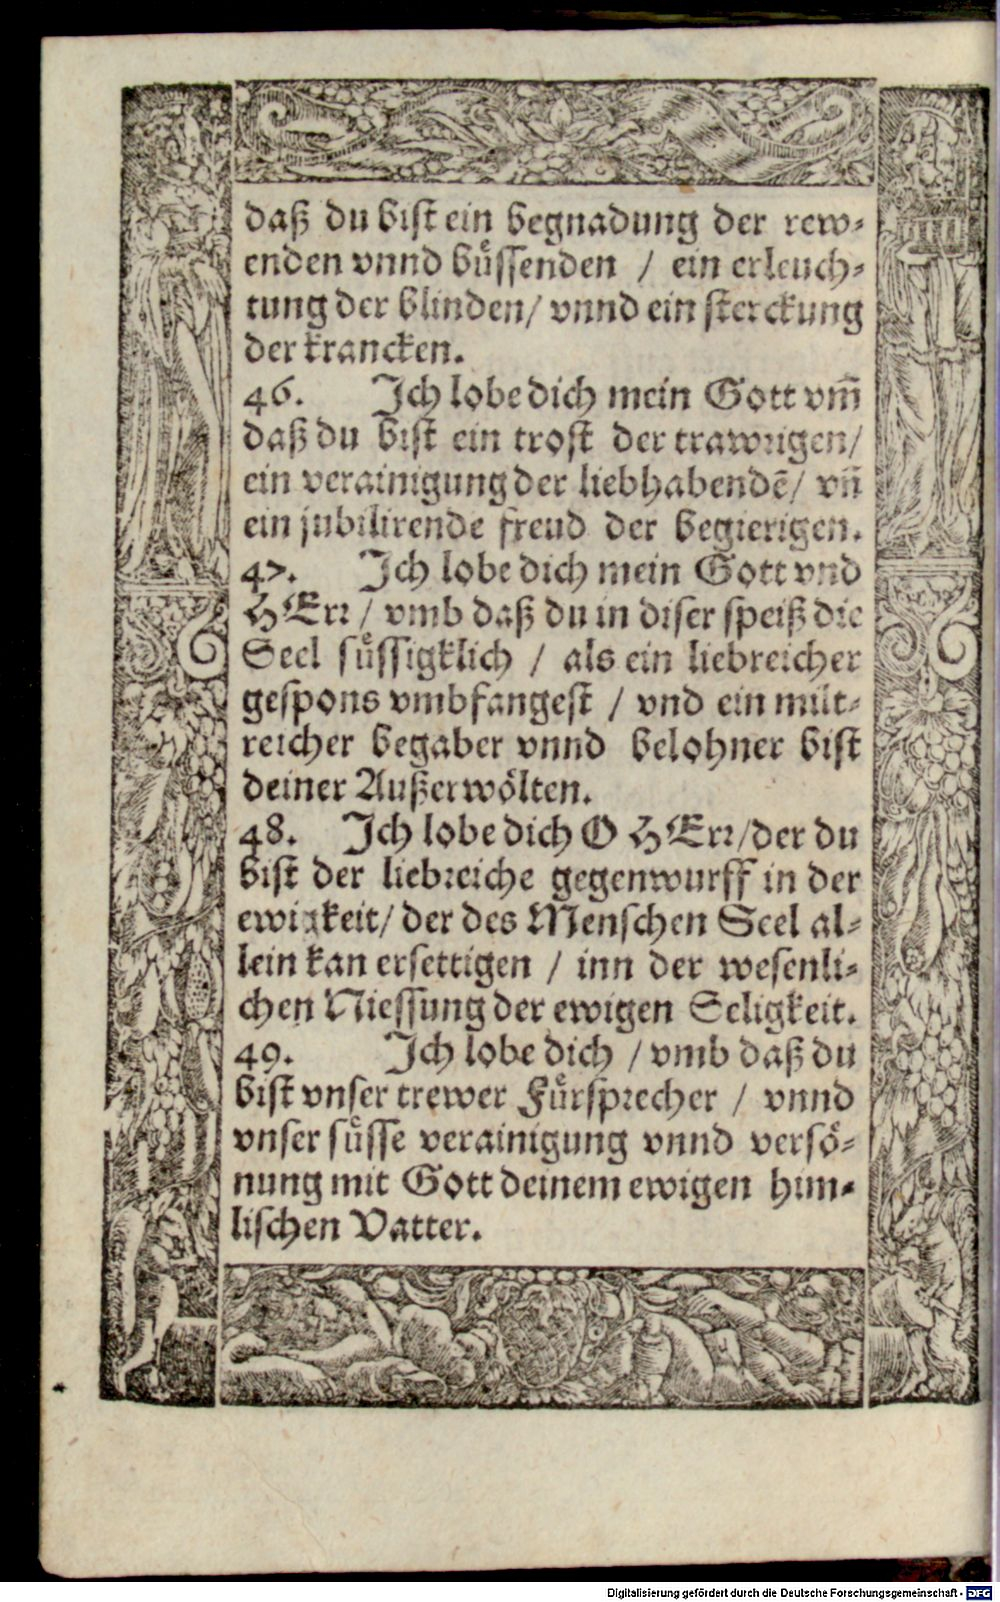 daß du bist ein begnadung der rew-
enden vnnd bůssenden / ein erleuch-
tung der blinden/ vnnd ein sterckung
der krancken.
46. Ich lobe dich mein Gott vm̄
daß du bist ein trost der trawrigen/
ein verainigung der liebhabendē/ vn̄
ein jubilirende freud der begierigen.
47. Ich lobe dich mein Gott vnd
HErr / vmb daß du in diser speiß die
Seel sůssigklich / als ein liebreicher
gespons vmbfangest / vnd ein milt-
reicher begaber vnnd belohner bist
deiner Außerwölten.
48. Ich lobe dich O HErr/der du
bist der liebreiche gegenwurff in der
ewigkeit/ der des Menschen Seel al-
lein kan ersettigen / inn der wesenli-
chen Niessung der ewigen Seligkeit.
49. Ich lobe dich / vmb daß du
bist vnser trewer Fůrsprecher / vnnd
vnser sůsse verainigung vnnd versö-
nung mit Gott deinem ewigen him-
lischen Vatter.
Digitalisierung gefördert durch die Deutsche Forschungsgemeinschaft - DFG